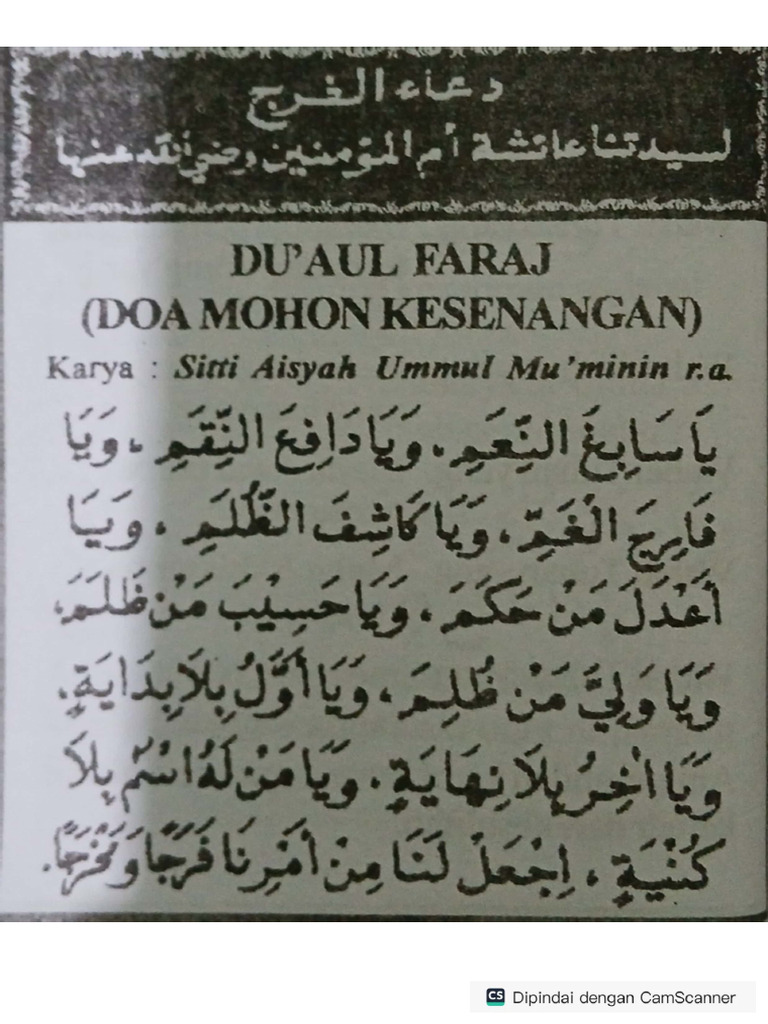 دعاء الفرج
لسيدتنا عائشة أم المؤمنين رضي الله عنها
DU'AUL FARAJ
(DOA MOHON KESENANGAN)
Karya : Sitti Aisyah Ummul Mu'minin r.a.
يَا سَابِغَ النِّعَمِ، وَيَا دَافِعَ النِّقَمِ، وَيَا
فَارِجَ الْغَمِّ، وَيَا كَاشِفَ الظُّلَمِ، وَيَا
أَعْدَلَ مَنْ حَكَمَ، وَيَا حَسِيْبَ مَنْ ظَلَمَ،
وَيَا وَلِيَّ مَنْ ظُلِمَ، وَيَا أَوَّلُ بِلَا بِدَايَةٍ،
وَيَا اٰخِرُ بِلَا نِهَايَةٍ، وَيَا مَنْ لَهُ اسْمٌ بِلَا
كُنْيَةٍ، اِجْعَلْ لَنَا مِنْ أَمْرِنَا فَرَجًا وَمَخْرَجًا.
CS Dipindai dengan CamScanner